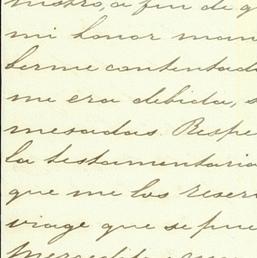 nistro, a fin de q
mi honor man
berme contentad
me era debida, s
mesadas. Respe
la testamentaria
que me los reser
viage que se pue